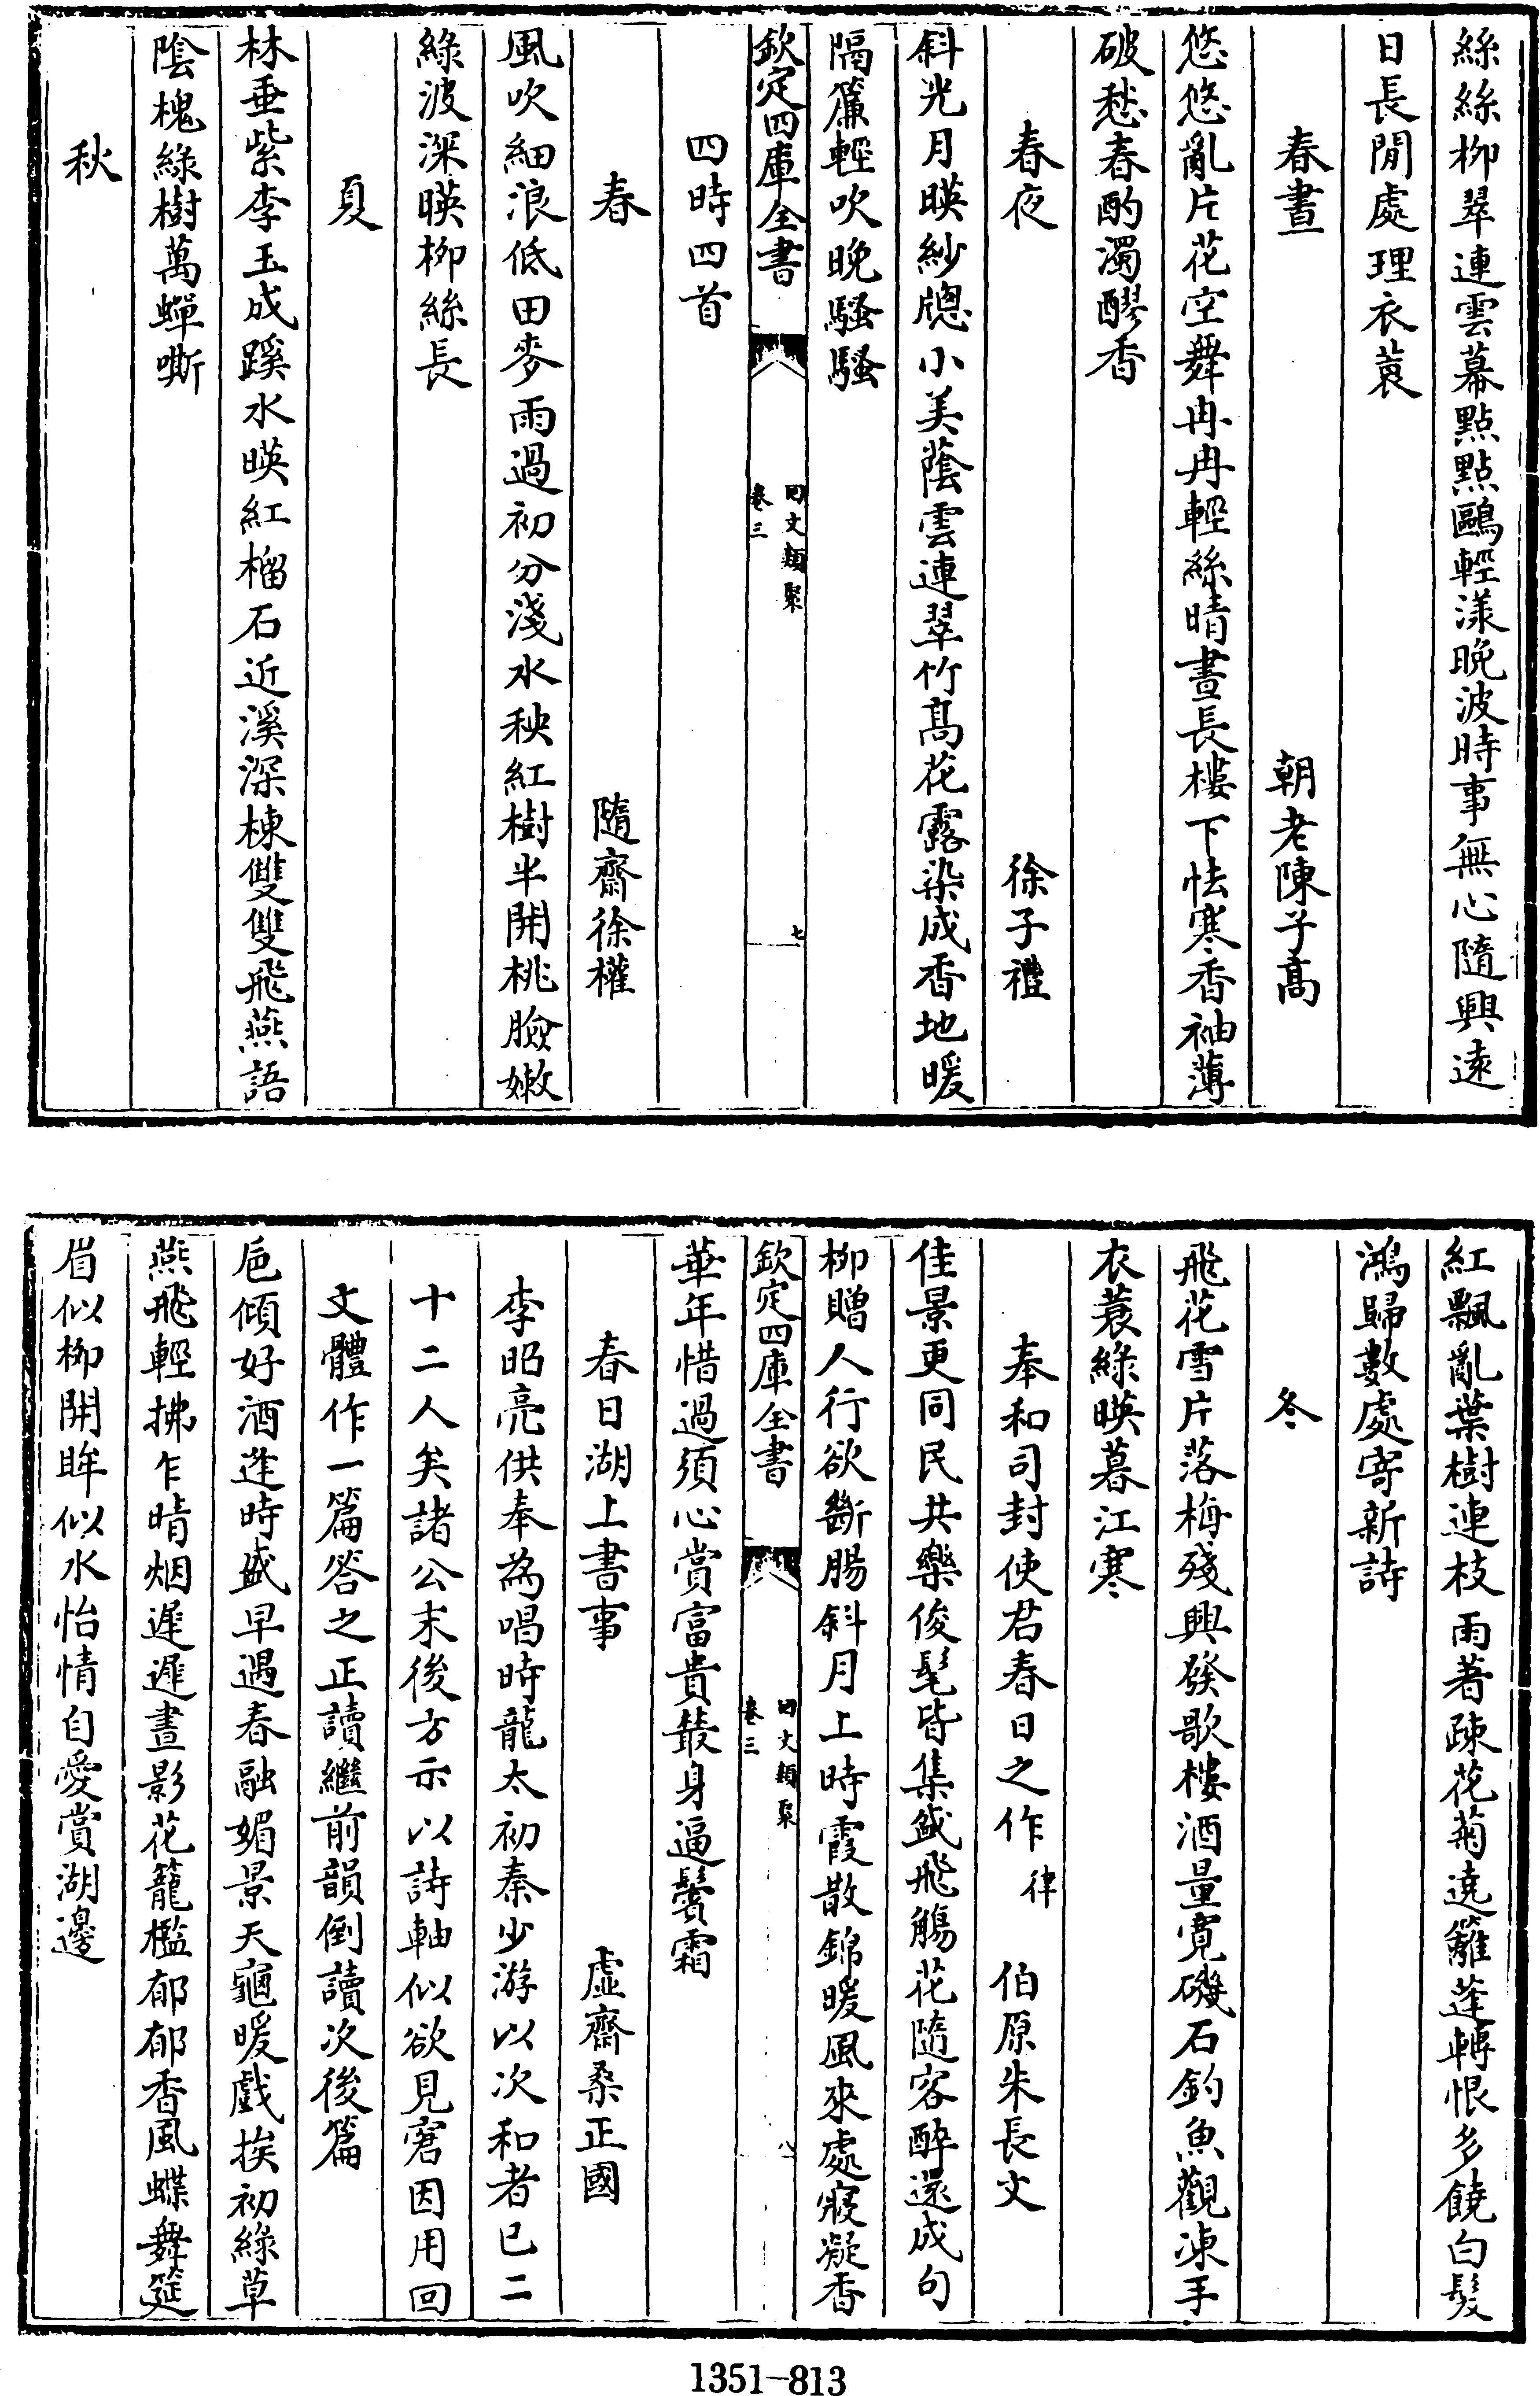 絲絲柳翠連雲幕點點鷗輕漾晚波時事無心隨興遠
日長閒處理衣蓑
春晝　朝老陳子高
悠悠亂片花空舞冉冉輕絲晴晝長樓下怯寒香袖薄
破愁春酌濁醪香
春夜　徐子禮
斜光月暎紗牕小美蔭雲連翠竹高花露染成香地暖
隔簾輕吹晚騷騷
欽定四庫全書　回文類聚卷三　七
四時四首
春　隨齋徐㩲
風吹細浪低田麥雨過初分淺水秧紅樹半開桃臉嫩
綠波深暎柳絲長
夏
林垂紫李玉成蹊水暎紅榴石近溪深棟雙雙飛燕語
陰槐綠樹萬蟬嘶
秋
紅飄亂葉樹連枝雨著疎花菊遶籬蓬轉恨多饒白髮
鴻歸數處寄新詩
冬
飛花雪片落梅殘興發歌樓酒量寛磯石釣魚觀凍手
衣蓑綠暎暮江寒
奉和司封使君春日之作律　伯原朱長文
佳景更同民共樂俊髦皆集盛飛觴花隨客醉還成句
柳贈人行欲斷腸斜月上時霞散錦暖風來處寢凝香
欽定四庫全書　回文類聚卷三　八
華年惜過須心賞富貴叢身逼鬢霜
春日湖上書事　虛齋桑正國
李昭亮供奉為唱時龍太初秦少游以次和者已二
十二人矣諸公末後方示以詩軸似欲見窘因用回
文體作一篇答之正讀繼前韻倒讀次後篇
巵傾好酒逢時盛早遇春融媚景天颸暖戲挨初綠草
燕飛輕拂乍晴烟遲遲晝影花籠檻郁郁香風蝶舞筵
眉似柳開眸似水怡情自愛賞湖邊
1351-813